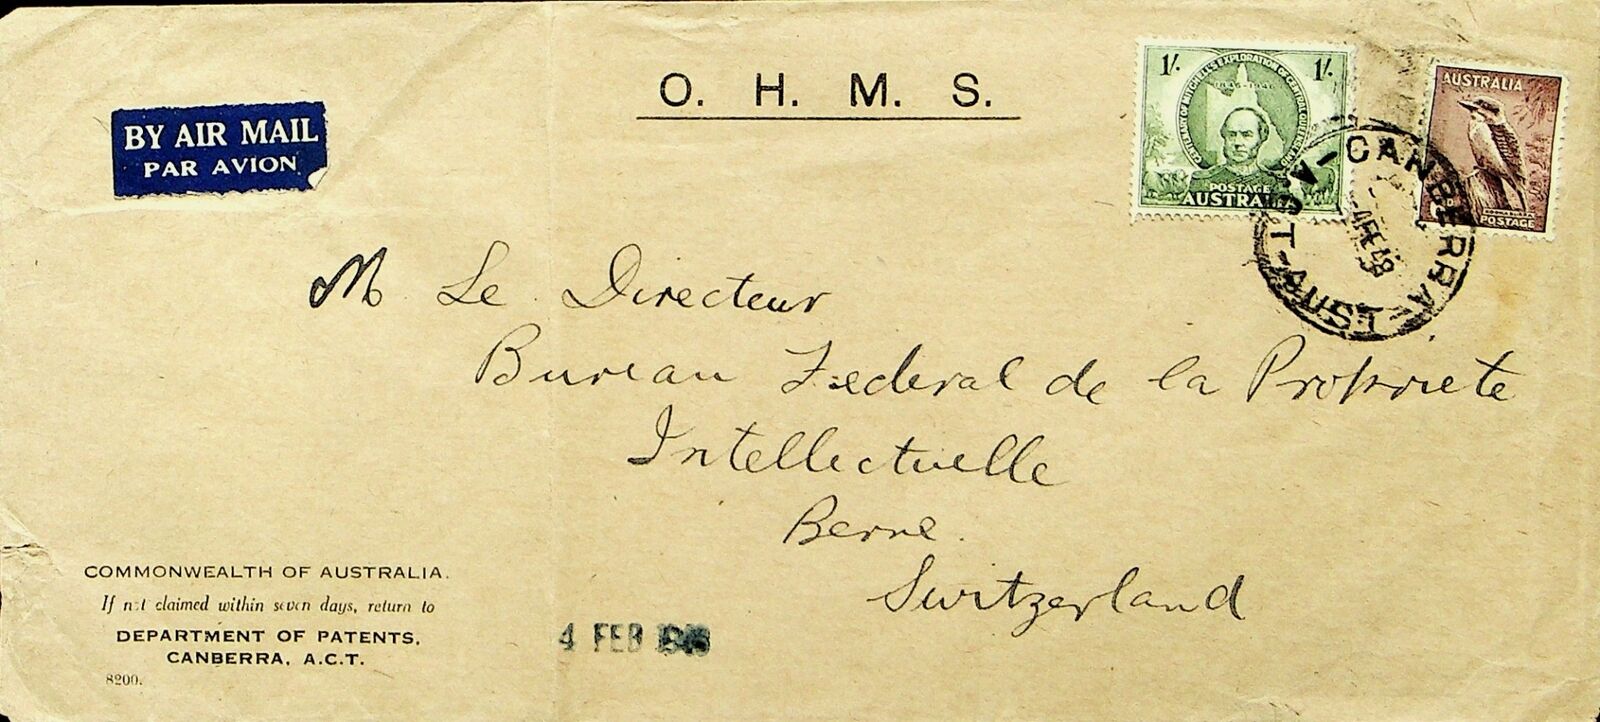 O. H. M. S.
BY AIR MAIL
PAR AVION
1/- 1/-
CENTENARY OF MITCHELL'S EXPLORATION OF CENTRAL QUEENSLAND
1846-1946
POSTAGE
AUSTRALIA
AUSTRALIA
POSTAGE
CANBERRA
A.C.T-AUST
4 FE 48
M Le Directeur
Bureau Federal de la Propriete
Intellectuelle
Berne.
Switzerland
COMMONWEALTH OF AUSTRALIA.
If not claimed within seven days, return to
DEPARTMENT OF PATENTS,
CANBERRA, A.C.T.
8200.
4 FEB 1948